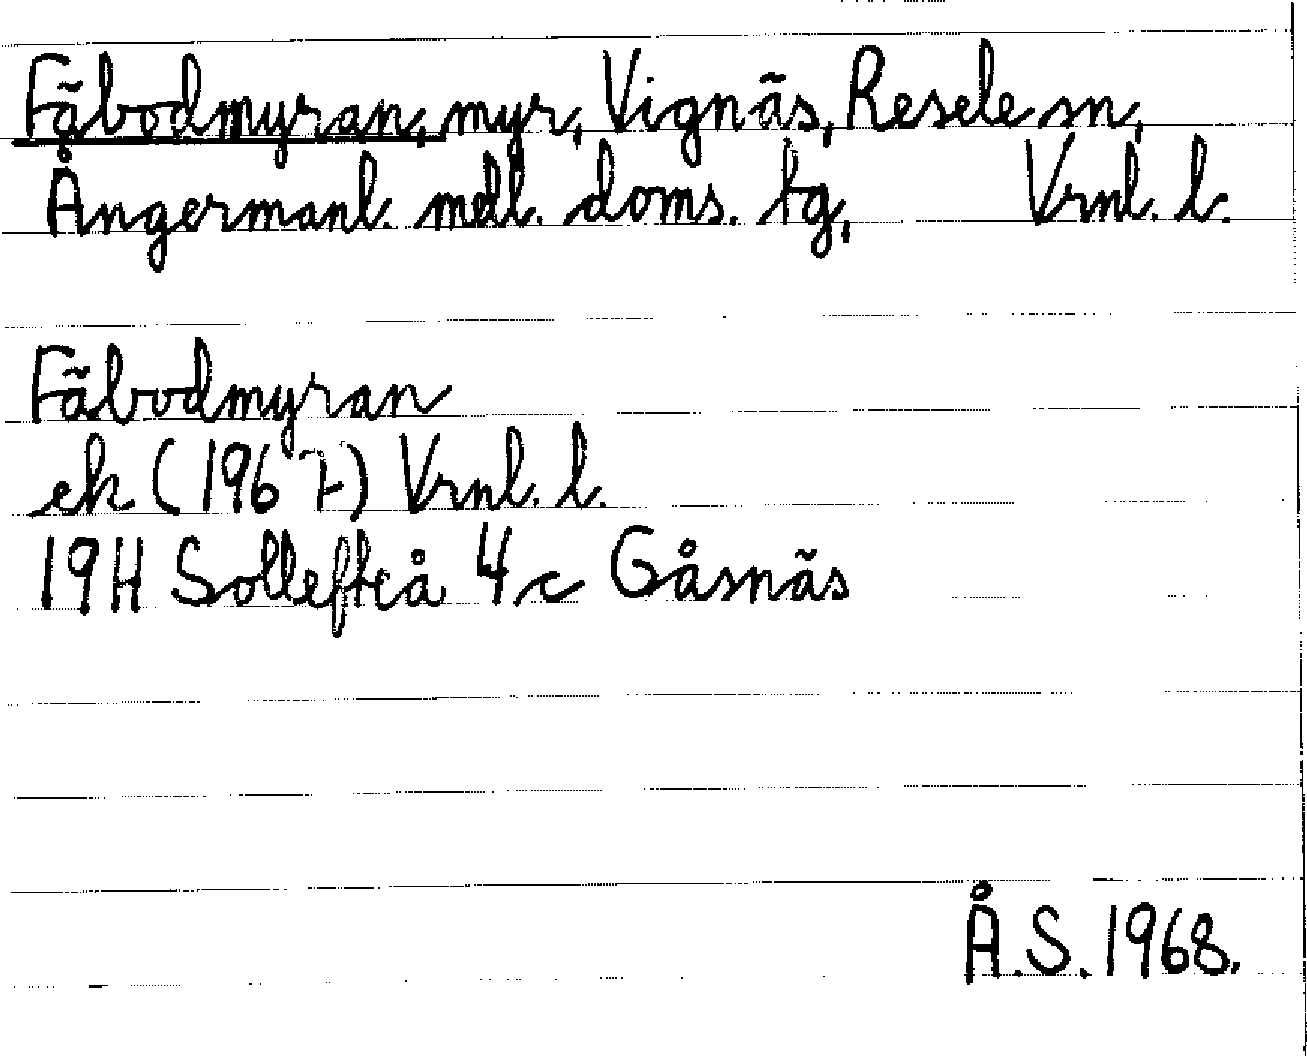 Fäbodmyran, myr, Vignäs, Resele sn,
Ångermanl. mell. doms. tg, Vrnl. l.
Fäbodmyran
ek (1967) Vrnl. l.
19H Sollefteå 4c Gåsnäs
Å.S. 1968.